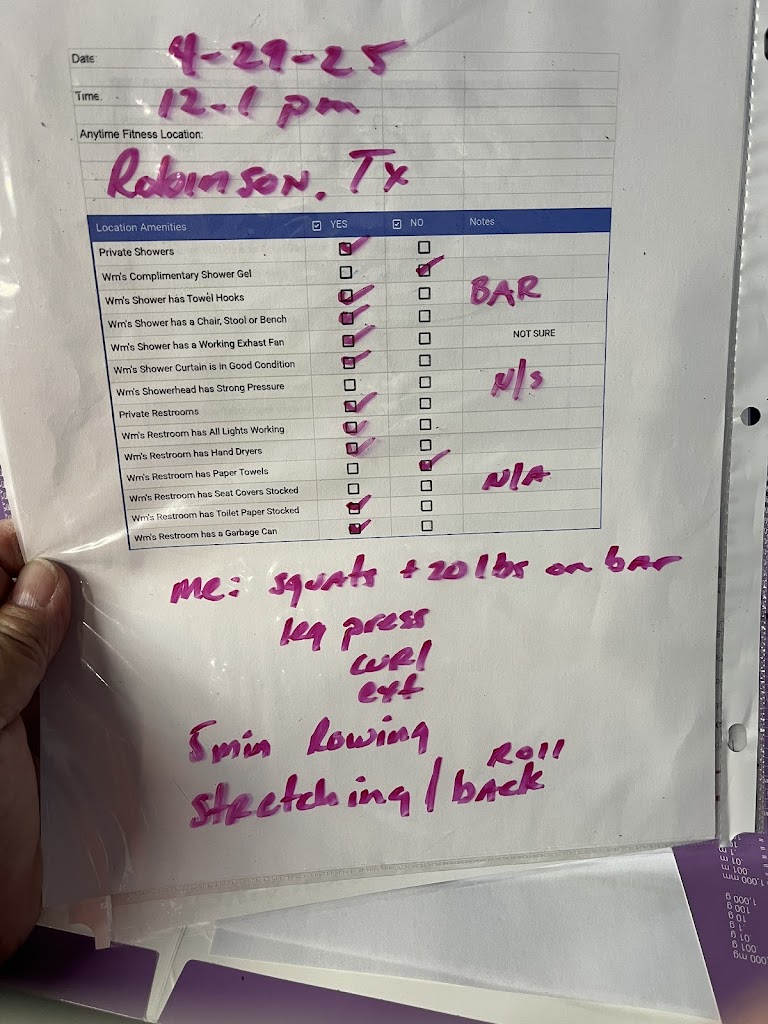 Date: 4-29-25
Time: 12-1 pm
Anytime Fitness Location:
Robinson, Tx
Location Amenities ☑ YES ☑ NO Notes
Private Showers ☑ ☐
Wm's Complimentary Shower Gel ☐ ☑
Wm's Shower has Towel Hooks ☑ ☐ BAR
Wm's Shower has a Chair, Stool or Bench ☑ ☐
Wm's Shower has a Working Exhast Fan ☑ ☐ NOT SURE
Wm's Shower Curtain is in Good Condition ☑ ☐
Wm's Showerhead has Strong Pressure ☐ ☐ N/S
Private Restrooms ☑ ☐
Wm's Restroom has All Lights Working ☑ ☐
Wm's Restroom has Hand Dryers ☑ ☐
Wm's Restroom has Paper Towels ☐ ☑
Wm's Restroom has Seat Covers Stocked ☐ ☐ N/A
Wm's Restroom has Toilet Paper Stocked ☑ ☐
Wm's Restroom has a Garbage Can ☑ ☐
me: squats + 20 lbs on bar
leg press
curl
ext
5 min Rowing
stretching / back Roll
1.000 mm
1,000 g
100 g
10 g
.1 g
.01 g
.001 g